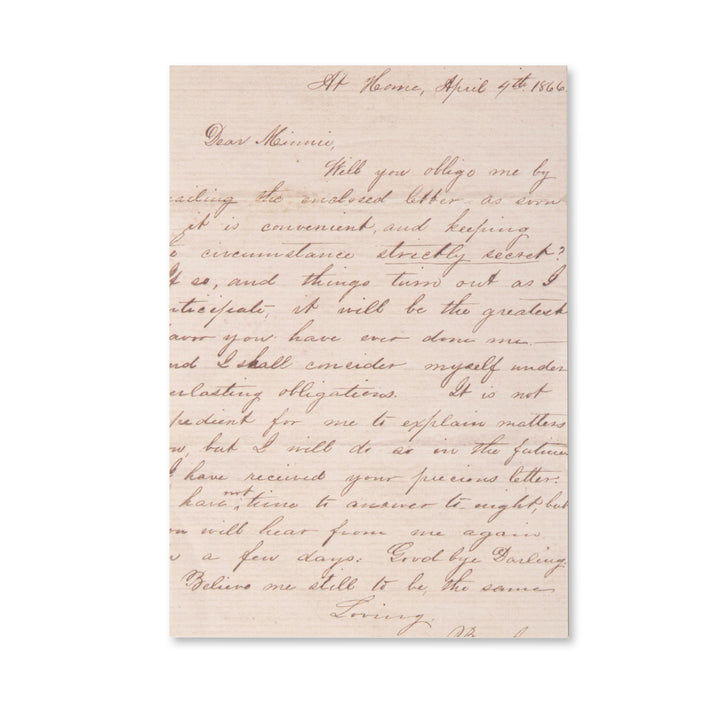 At Home, April 4th 1866
Dear Minnie,
Will you oblige me by
ailing the enclosed letter as soon
it is convenient, and keeping
circumstance strictly secret?
If so, and things turn out as I
nticipate, it will be the greatest
avor you have ever done me.—
nd I shall consider myself under
erlasting obligations. It is not
pedient for me to explain matters
ow, but I will do so in the future
I have received your precious letter.
have not time to answer to-night, but
ou will hear from me again
a few days. Good bye Darling.
Believe me still to be, the same
Loving.